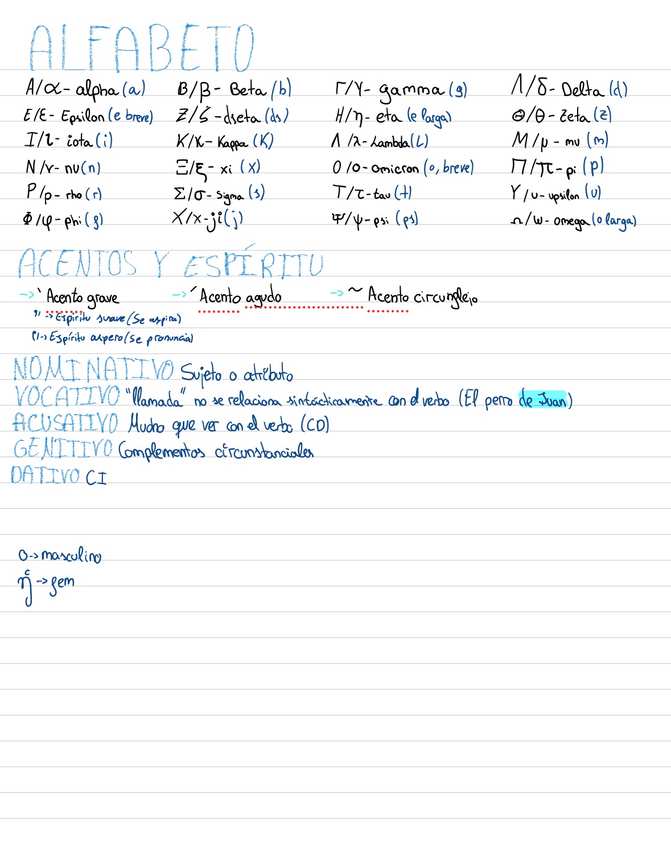 ALFABETO
A/α- alpha (a) B/β- Beta (b) Γ/γ- gamma (g) Λ/δ- Delta (d)
E/ε- Epsilon (e breve) Z/ζ-dseta (ds) H/η- eta (e larga) Θ/θ- zeta (z)
I/ι- iota (i) K/κ- Kappa (K) Λ/λ- Lambda (L) M/μ - mu (m)
N/ν- nu (n) Ξ/ξ- xi (x) O/o- omicron (o, breve) Π/π-pi (p)
P/ρ- rho (r) Σ/σ- sigma (s) T/τ-tau (t) Y/υ- upsilon (u)
Φ/φ- phi (f) X/x-ji (j) Ψ/ψ-psi (ps) Ω/ω- omega (o larga)
ACENTOS Y ESPÍRITU
-> ` Acento grave -> ´ Acento agudo -> ~ Acento circunflejo
'/ -> Espíritu suave (Se aspira)
(/-> Espíritu aspero (se pronuncia)
NOMINATIVO Sujeto o atributo
VOCATIVO "llamada" no se relaciona sintácticamente con el verbo (El perro de Juan)
ACUSATIVO Mucho que ver con el verbo (CD)
GENITIVO Complementos circunstanciales
DATIVO CI
O-> masculino
ἡ -> fem